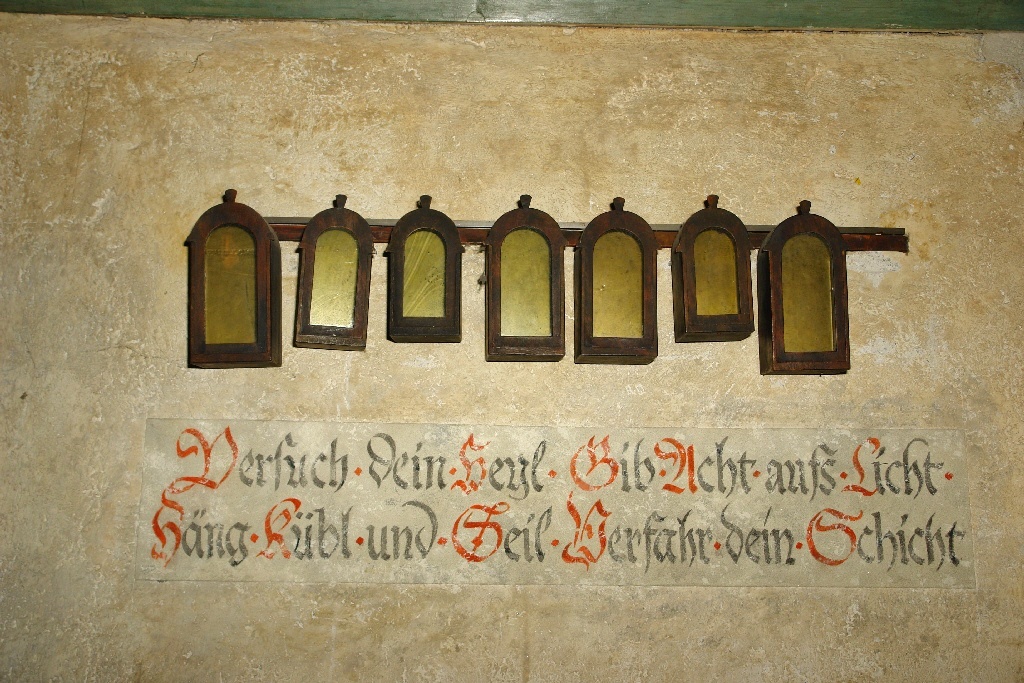 Versuch · dein · Heyl · Gib Acht · aufs · Licht ·
Häng · Kübl · und · Seil · Verfahr · dein · Schicht